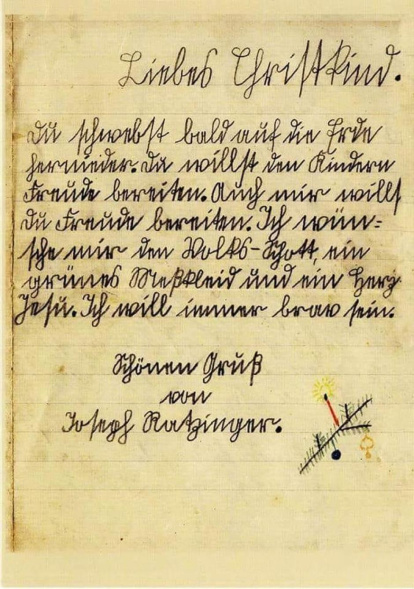 Liebes Christkind.
Du schwebst bald auf die Erde
hernieder. Du willst den Kindern
Freude bereiten. Auch mir willst
Du Freude bereiten. Ich wün=
sche mir den Volks-Schott, ein
grünes Meßkleid und ein Herz
Jesu. Ich will immer brav sein.
Schönen Gruß
von
Joseph Ratzinger.